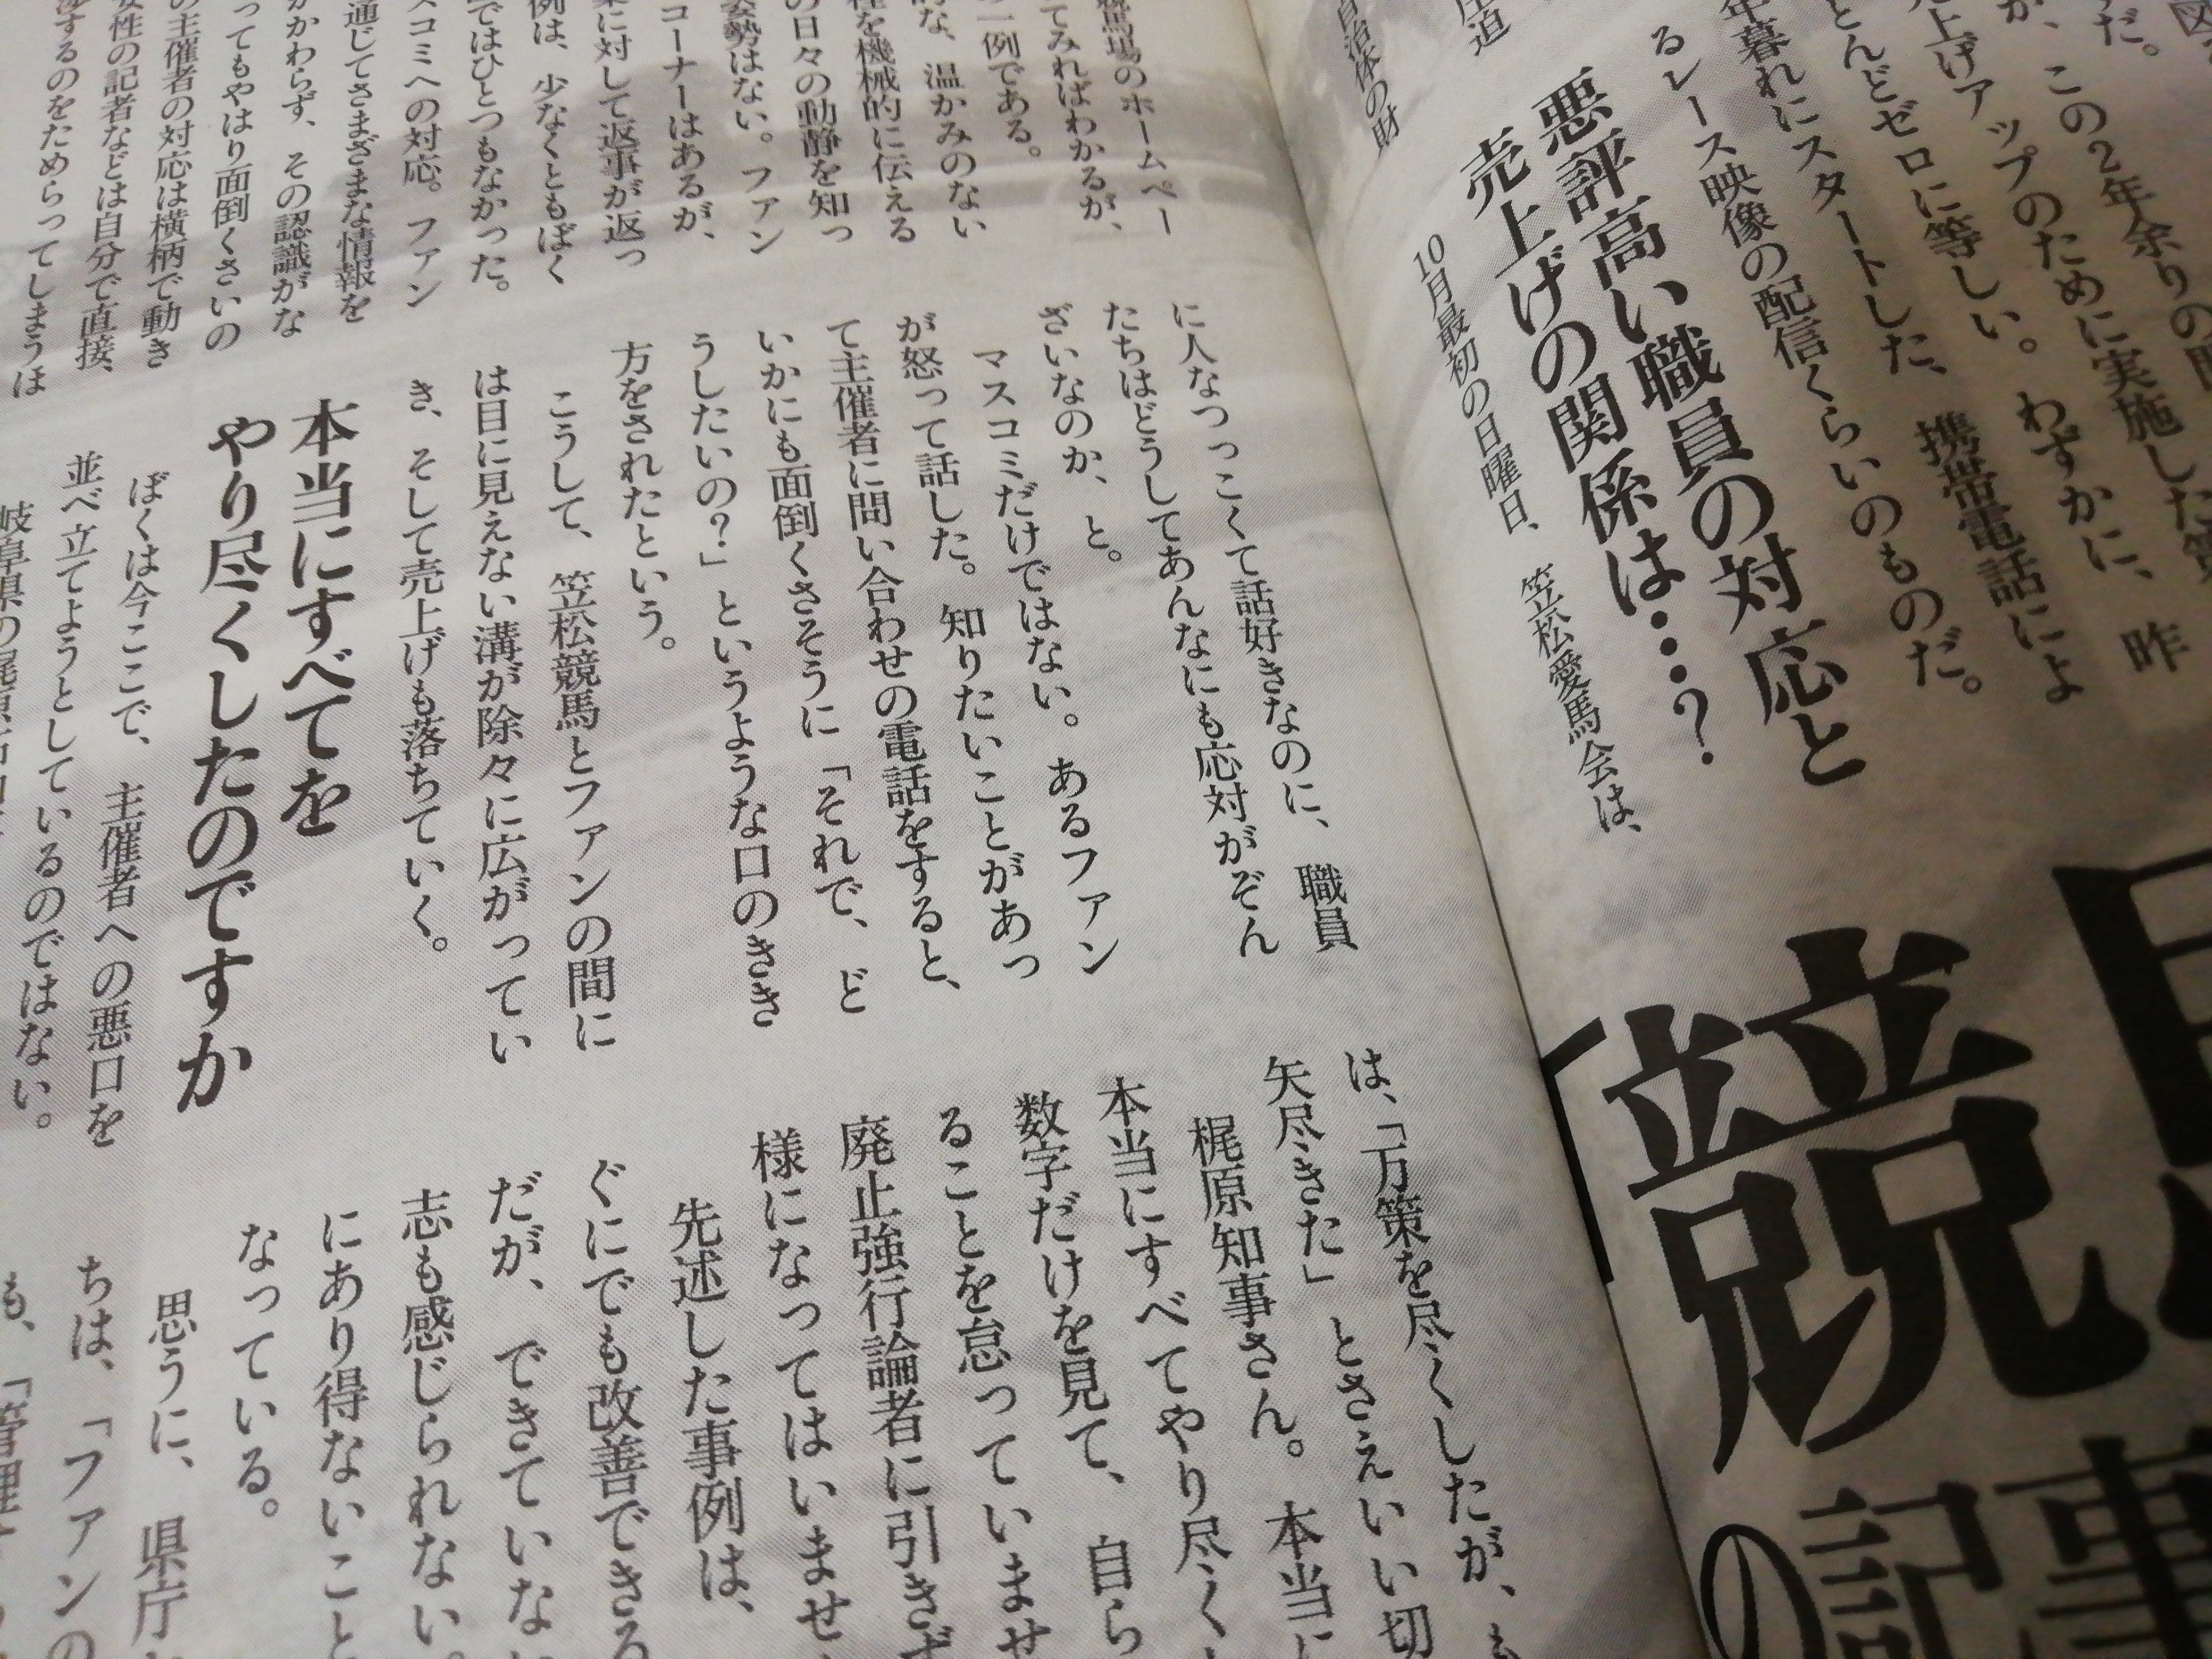 図
だ。
が、この2年余りの間
に実施した策
売上げアップのために
とんどゼロに等しい。わずかに、昨
年暮れにスタートした、携帯電話によ
るレース映像の配信くらいのものだ。
悪評高い職員の対応と
売上げの関係は…?
10月最初の日曜日、笠松愛馬会は、
圧迫
自治体の財
競
記事
の
競馬場のホームペー
てみればわかるが、
一例である。
な、温かみのない
を機械的に伝える
の日々の動静を知っ
姿勢はない。ファン
コーナーはあるが、
に対して返事が返っ
例は、少なくともぼく
ではひとつもなかった。
スコミへの対応。ファン
通じてさまざまな情報を
かかわらず、その認識がな
ってもやはり面倒くさいの
の主催者の対応は横柄で動き
女性の記者などは自分で直接、
するのをためらってしまうほ
に人なつっこくて話好きなのに、職員
たちはどうしてあんなにも応対がぞん
ざいなのか、と。
マスコミだけではない。あるファン
が怒って話した。知りたいことがあっ
て主催者に問い合わせの電話をすると、
いかにも面倒くさそうに「それで、ど
うしたいの?」というような口のきき
方をされたという。
こうして、笠松競馬とファンの間に
は目に見えない溝が除々に広がってい
き、そして売上げも落ちていく。
本当にすべてを
やり尽くしたのですか
ぼくは今ここで、主催者への悪口を
並べ立てようとしているのではない。
岐阜県の梶原
は、「万策を尽くしたが、
矢尽きた」とさえいい切
梶原知事さん。本当に
本当にすべてやり尽く
数字だけを見て、自ら
ることを怠っていませ
廃止強行論者に引きず
様になってはいませ
先述した事例は、
ぐにでも改善できる
だが、できていな
志も感じられない。
にあり得ないこと
なっている。
思うに、県庁
ちは、「ファンの
も、「管理